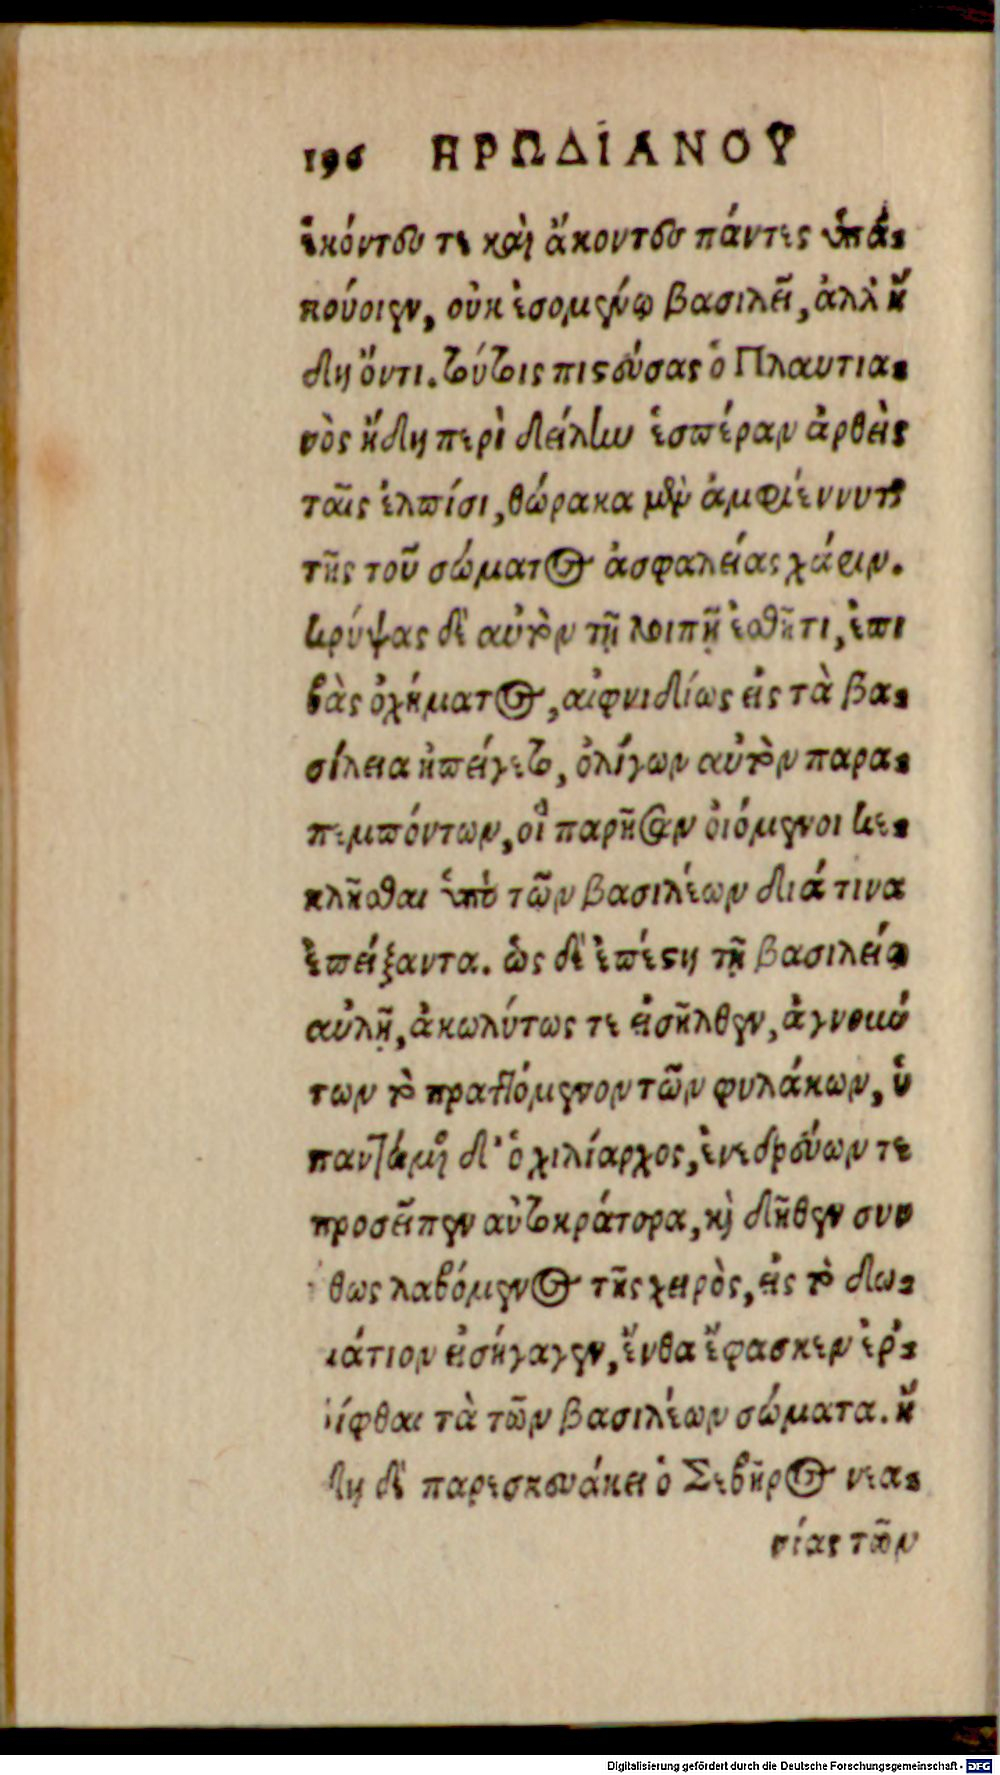 196 ΗΡΩΔΙΑΝΟΥ
ἑκόντες τε καὶ ἄκοντες πάντες ὑπα-
κούοιεν, οὐκ ἐσομένῳ βασιλεῖ, ἀλλ' ἤ
δη ὄντι. τούτοις πιστεύσας ὁ Πλαυτια-
νὸς ἤδη περὶ δείλην ἑσπέραν ἀρθεὶς
ταῖς ἐλπίσι, θώρακα μὲν ἀμφιέννυται
τῆς τοῦ σώματος ἀσφαλείας χάριν.
κρύψας δὲ αὐτὸν τῇ λοιπῇ ἐσθῆτι, ἐπι
βὰς ὀχήματος, αἰφνιδίως εἰς τὰ βα-
σίλεια ἠπείγετο, ὀλίγων αὐτὸν παρα-
πεμπόντων, οἳ παρῆσαν οἰόμενοι κε-
κλῆσθαι ὑπὸ τῶν βασιλέων διά τινα
ἐπείξαντα. ὡς δὲ ἐπέστη τῇ βασιλείῳ
αὐλῇ, ἀκωλύτως τε εἰσῆλθεν, ἀγνοού
των τὸ πραττόμενον τῶν φυλάκων, ὑ
παντήσας δ' ὁ χιλίαρχος, ἐνεδρεύων τε
προσεῖπεν αὐτοκράτορα, καὶ δῆθεν συν
θως λαβόμενος τῆς χειρὸς, εἰς τὸ δω-
μάτιον εἰσήγαγεν, ἔνθα ἔφασκεν ἐρ-
ρίφθαι τὰ τῶν βασιλέων σώματα. ἤ
δη δὲ παρεσκευάκει ὁ Σεβῆρος νεα-
νίας τῶν
Digitalisierung gefördert durch die Deutsche Forschungsgemeinschaft - DFG